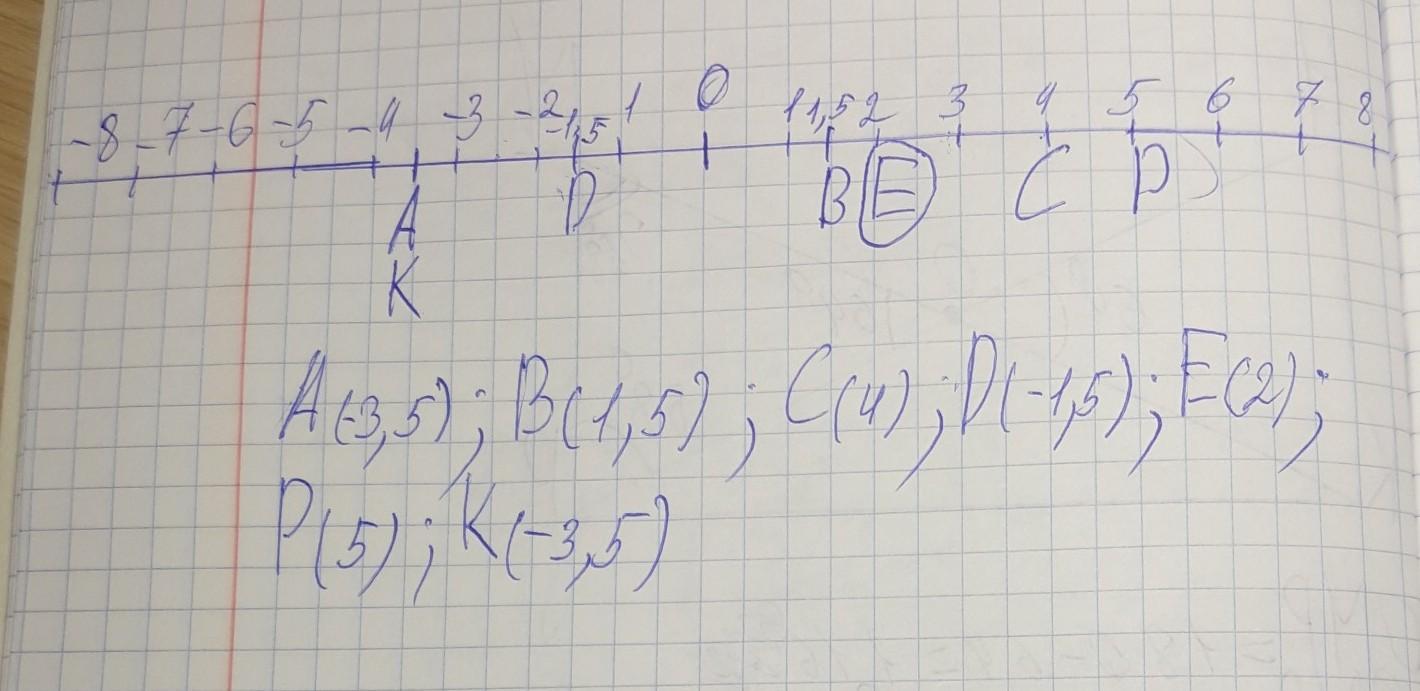 -8 -7 -6 -5 -4 -3 -2 -1,5 1 0 1 1,5 2 3 4 5 6 7 8
A D B E C P
K
A(-3,5); B(1,5); C(4); D(-1,5); E(2);
P(5); K(-3,5)